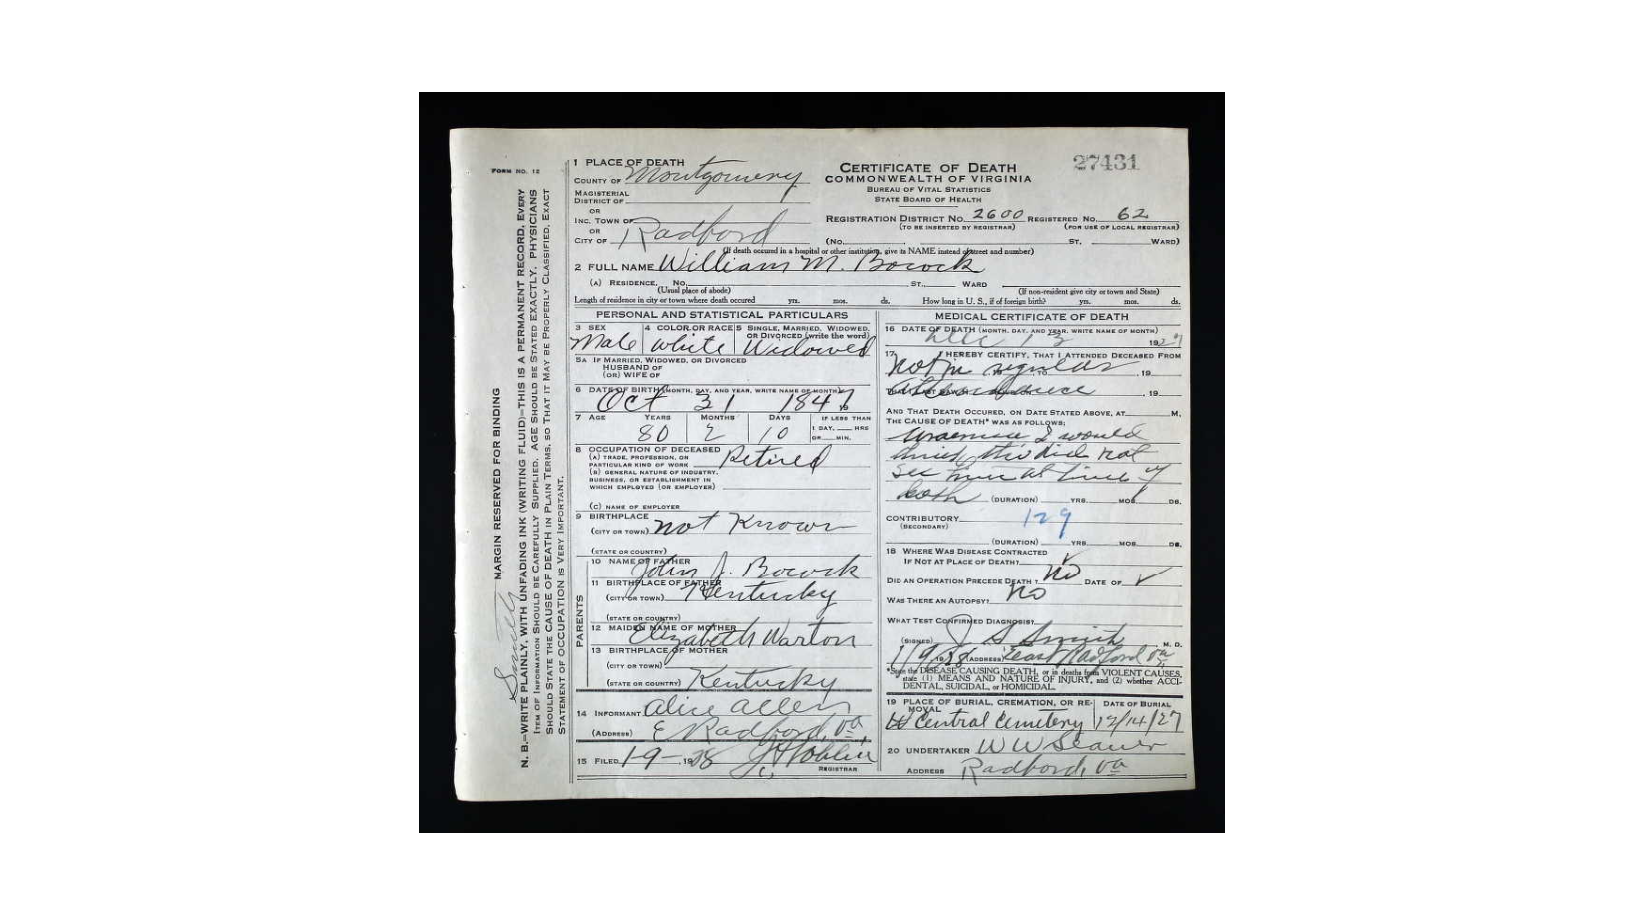 FORM NO. 12
MARGIN RESERVED FOR BINDING
N. B.—WRITE PLAINLY, WITH UNFADING INK (WRITING FLUID)—THIS IS A PERMANENT RECORD, EVERY
ITEM OF INFORMATION SHOULD BE CAREFULLY SUPPLIED. AGE SHOULD BE STATED EXACTLY. PHYSICIANS
SHOULD STATE THE CAUSE OF DEATH IN PLAIN TERMS, SO THAT IT MAY BE PROPERLY CLASSIFIED, EXACT
STATEMENT OF OCCUPATION IS VERY IMPORTANT.
1 PLACE OF DEATH
COUNTY OF Montgomery
MAGISTERIAL
DISTRICT OF
OR
INC. TOWN OF
OR
CITY OF Radford
CERTIFICATE OF DEATH
COMMONWEALTH OF VIRGINIA
BUREAU OF VITAL STATISTICS
STATE BOARD OF HEALTH
27431
REGISTRATION DISTRICT NO. 2600 REGISTERED NO. 62
(TO BE INSERTED BY REGISTRAR) (FOR USE OF LOCAL REGISTRAR)
(No. ST, WARD)
(If death occured in a hospital or other institution, give its NAME instead of street and number)
2 FULL NAME William M. Bocock
(A) RESIDENCE, No. ST., WARD
(Usual place of abode) (If non-resident give city or town and State)
Length of residence in city or town where death occured yrs. mos. ds. How long in U. S., if of foreign birth? yrs. mos. ds.
PERSONAL AND STATISTICAL PARTICULARS
3 SEX 4 COLOR OR RACE 5 SINGLE, MARRIED, WIDOWED,
OR DIVORCED (write the word)
Male white Widowed
5A IF MARRIED, WIDOWED, OR DIVORCED
HUSBAND OF
(OR) WIFE OF
6 DATE OF BIRTH (MONTH, DAY, AND YEAR, WRITE NAME OF MONTH)
Oct 31 1847
7 AGE YEARS MONTHS DAYS IF LESS THAN
1 DAY, HRS
OR MIN.
80 2 10
8 OCCUPATION OF DECEASED
(A) TRADE, PROFESSION, OR
PARTICULAR KIND OF WORK Retired
(B) GENERAL NATURE OF INDUSTRY,
BUSINESS, OR ESTABLISHMENT IN
WHICH EMPLOYED (OR EMPLOYER)
(C) NAME OF EMPLOYER
9 BIRTHPLACE
(CITY OR TOWN) not Known
(STATE OR COUNTRY)
PARENTS
10 NAME OF FATHER
John J. Bocock
11 BIRTHPLACE OF FATHER
(CITY OR TOWN) Kentucky
(STATE OR COUNTRY)
12 MAIDEN NAME OF MOTHER
Elizabeth Warton
13 BIRTHPLACE OF MOTHER
(CITY OR TOWN)
(STATE OR COUNTRY) Kentucky
14 INFORMANT Alice Allen
(ADDRESS) E Radford, Va
15 FILED 1-9-1928
REGISTRAR
MEDICAL CERTIFICATE OF DEATH
16 DATE OF DEATH (MONTH, DAY, AND YEAR, WRITE NAME OF MONTH)
Dec 13 1927
17 I HEREBY CERTIFY, THAT I ATTENDED DECEASED FROM
not in regular , 19
attendance , 19
AND THAT DEATH OCCURED, ON DATE STATED ABOVE, AT M.
THE CAUSE OF DEATH* WAS AS FOLLOWS;
Uraemia I would
think this did not
see him at time of
death (DURATION) YRS. MOS. DS.
CONTRIBUTORY 129
(SECONDARY)
(DURATION) YRS. MOS. DS.
18 WHERE WAS DISEASE CONTRACTED
IF NOT AT PLACE OF DEATH?
DID AN OPERATION PRECEDE DEATH? No DATE OF
WAS THERE AN AUTOPSY? No
WHAT TEST CONFIRMED DIAGNOSIS?
(SIGNED) J S Smith M. D.
1/9 1928 (ADDRESS) East Radford Va
*State the DISEASE CAUSING DEATH, or in deaths from VIOLENT CAUSES,
state (1) MEANS AND NATURE OF INJURY, and (2) whether ACCI-
DENTAL, SUICIDAL, or HOMICIDAL.
19 PLACE OF BURIAL, CREMATION, OR RE-
MOVAL DATE OF BURIAL
Central Cemetery 12/14/27
20 UNDERTAKER W W Seaver
ADDRESS Radford, Va